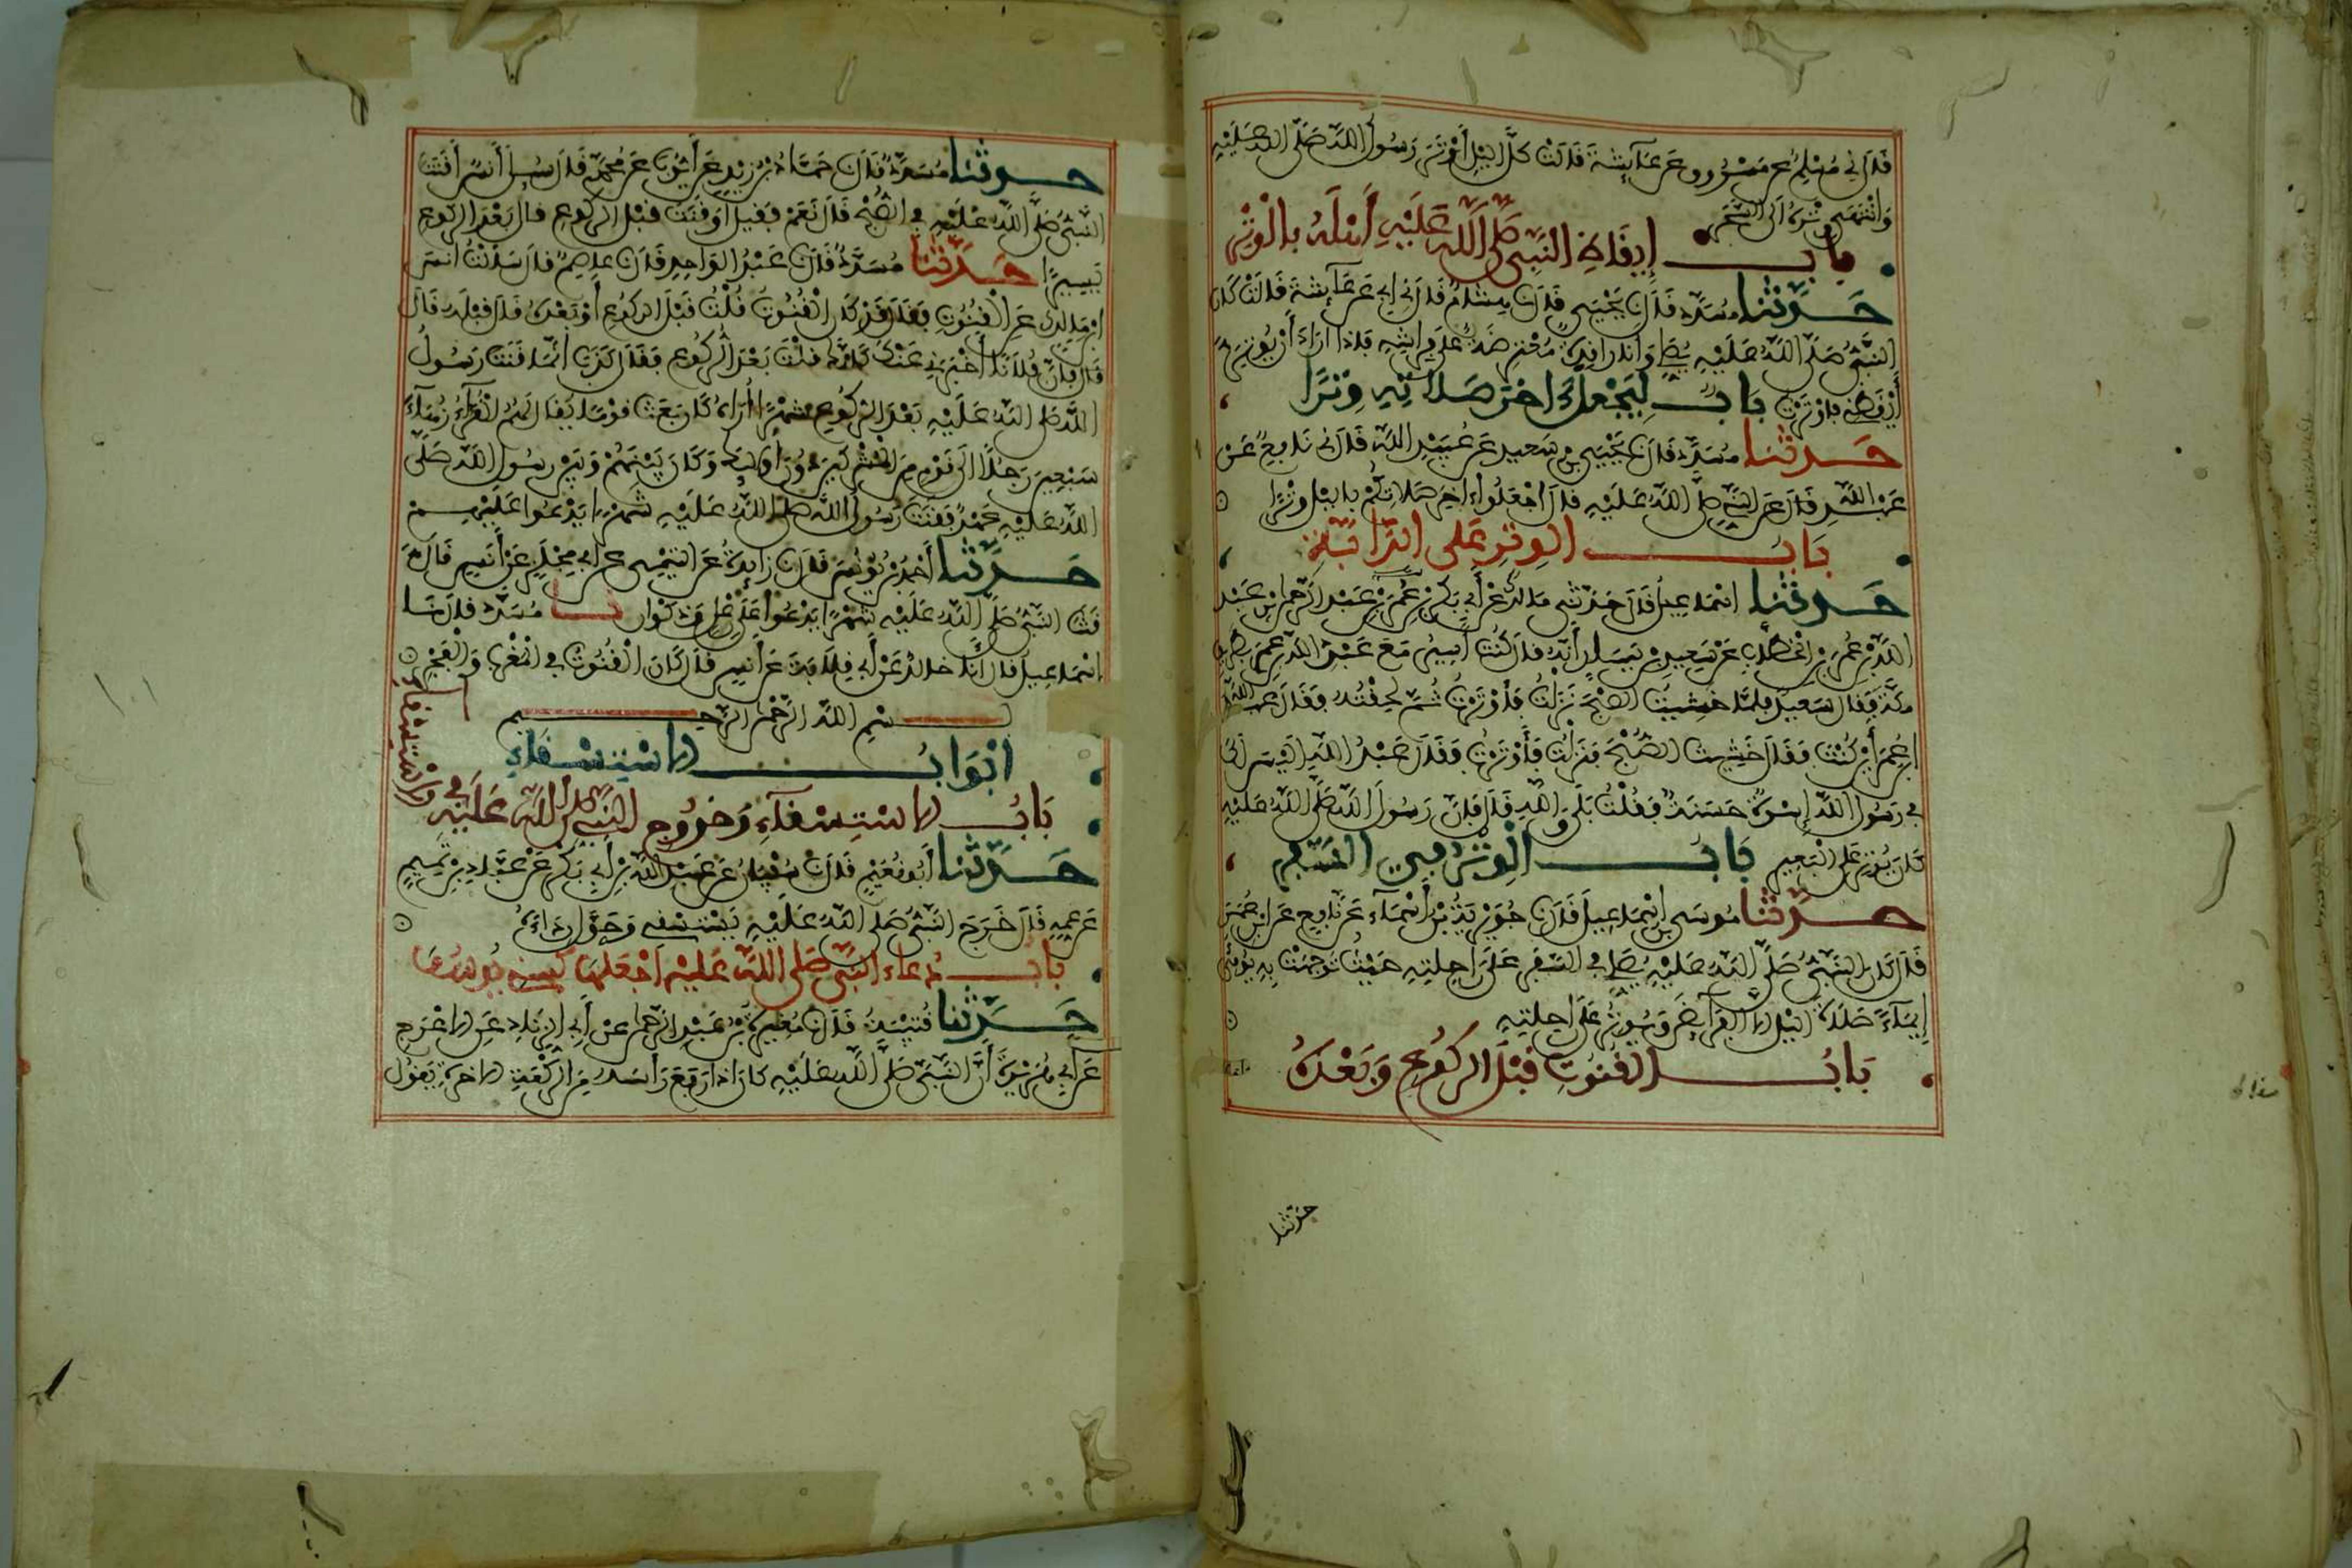 قال ني مسلم عن مسروق عن عائشة قالت كل اليل أوتر رسول الله صلى الله عليه
وانتهى وتره الى السحر
باب إيقاظ النبي صلى الله عليه أهله بالوتر
حدثنا مسدد قال نا يحيى قال نا هشام قال ني ابي عن عائشة قالت كان
النبي صلى الله عليه يصلي وانا راقدة معترضة على فراشه فاذا اراد أن يوتر
أيقظني فاوترت باب ليجعل ءاخر صلاته وترا
حدثنا مسدد قال نا يحيى بن سعيد عن عبيد الله قال ني نافع عن
عبد الله قال عن النبي صلى الله عليه قال اجعلوا ءاخر صلاتكم باليل وترا
باب الوتر على الدابة
حدثنا اسماعيل قال حدثني مالك عن أبي بكر بن عمر بن عبد الرحمان بن عبد
الله بن عمر بن الخطاب عن سعيد بن يسار أنه قال كنت أسير مع عبد الله بن عمر بطريق
مكة فقال سعيد فلما خشيت الصبح نزلت فأوترت ثم لحقته فقال عبد الله
ابن عمر أين كنت فقلت خشيت الصبح فنزلت فأوترت فقال عبد الله اليس لك
في رسول الله إسوة حسنة فقلت بلى والله قال فإن رسول الله صلى الله عليه
كان يوتر على البعير باب الوتر في السفر
حدثنا موسى بن إسماعيل قال نا جويرية بن أسماء عن نافع عن ابن عمر
قال كان النبي صلى الله عليه يصلي في السفر على راحلته حيث توجهت به يومئ
إيماء صلاة اليل الا الفرائض ويوتر على راحلته
باب القنوت قبل الركوع وبعده
حدثنا
حدثنا مسدد قال نا حماد بن زيد عن أيوب عن محمد قال سئل أنس أقنت
النبي صلى الله عليه في الصبح قال نعم فقيل أوقنت قبل الركوع قال بعد الركوع
يسيرا حدثنا مسدد قال نا عبد الواحد قال نا عاصم قال سألت انس
ابن مالك عن القنوت فقال قد كان القنوت قلت قبل الركوع أو بعده قال قبله قال
قال فإن فلانا أخبرني عنك أنك قلت بعد الركوع فقال كذب انما قنت رسول
الله صلى الله عليه بعد الركوع شهرا أراه كان بعث قوما يقال لهم القراء زهاء
سبعين رجلا الى قوم من المشركين دون أولئك وكان بينهم وبين رسول الله صلى
الله عليه عهد فقنت رسول الله صلى الله عليه شهرا يدعوا عليهم
حدثنا أحمد بن يونس قال نا زايدة عن التيمي عن ابي مجلز عن أنس قال
قنت النبي صلى الله عليه شهرا يدعوا على رعل وذكوان نا مسدد قال نا
اسماعيل قال انا خالد عن أبي قلابة عن أنس قال كان القنوت في المغرب والفجر
بسم الله الرحمن الرحيم
ابواب الاستسقاء
باب الاستسقاء وخروج النبي صلى الله عليه في
الاستسقاء
حدثنا أبو نعيم قال نا سفيان عن عبد الله بن أبي بكر عن عباد بن تميم
عن عمه قال خرج النبي صلى الله عليه يستسقي وحول رداءه
باب دعاء النبي صلى الله عليه اجعلها كسني يوسف
حدثنا قتيبة قال نا مغيرة بن عبد الرحمان عن أبي الزناد عن الاعرج
عن أبي هريرة أن النبي صلى الله عليه كان اذا رفع رأسه من الركعة الاخرة يقول